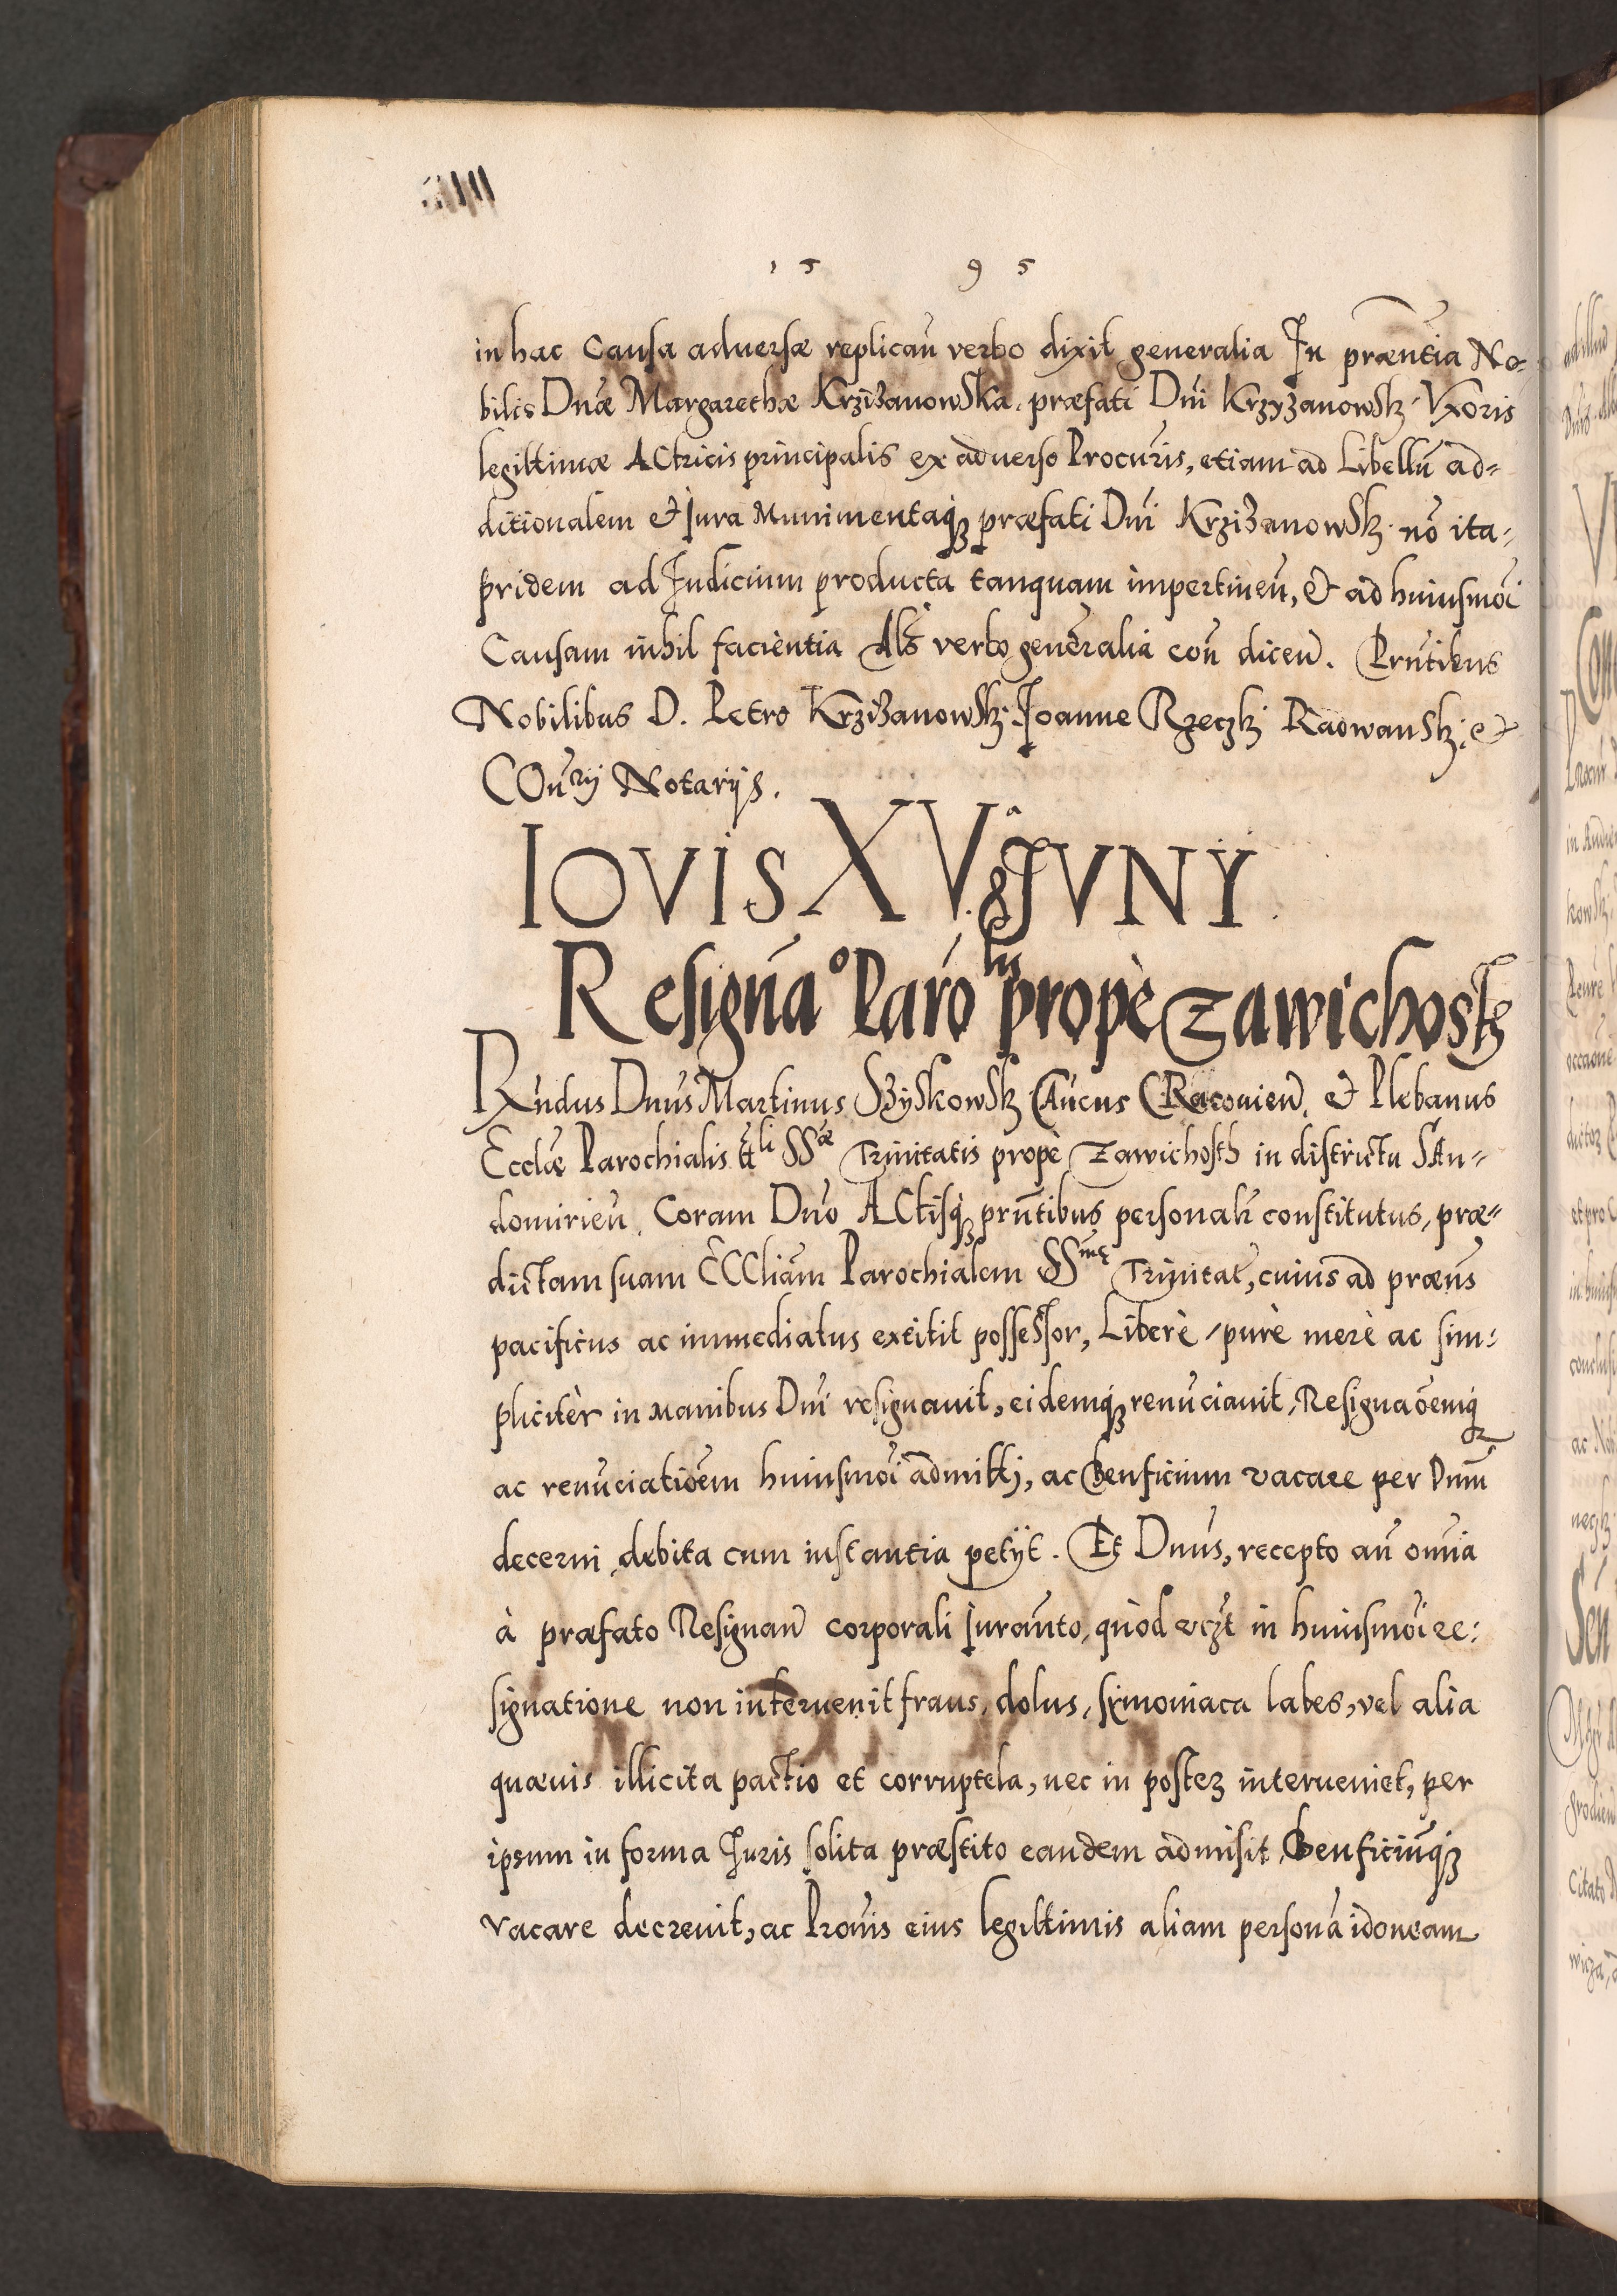 15 95
in hac Causa aduersæ replicañ verbo dixit generalia In præntia No-
bilis Dnæ Margarethæ Krziżanowska, præfati Dni Krzyżanowsk. Vxoris
legittimæ ACtricis principalis ex aduerso Procuris, etiam ad Libellū ad-
ditionalem et Jura Munimentaq̢ præfati Dni Krziżanowsk. nō ita-
pridem ad Judicium producta tanquam impertineñ, et ad huiusmoi
Causam nihil facientia Als verbo generalia coñ diceñ. Prñtibus
Nobilibus D. Petro Krziżanowsk. Joanne Rzeczk Radowansk. et
COñrij Notarijs.
IOVIS XV.a JVNY
Resigña o Paro lis propè Zawichostz
Rñdus Dnus Martinus Szyskowsk CAñcus CRacouieñ. et Plebanus
Ecclæ Parochialis tli SSæ Trinitatis propè Zawichosth in districtu SAn-
domirieñ, Coram Dño ACtisq̢ prñtibus personalr constitutus, præ-
dictam suam ECCliam Parochialem SSmę Trinitat, cuius ad præñs
pacificus ac immediatus extitit possessor, Liberè, purè merè ac sim-
plicitèr in Manibus Dni resignauit, eidemq̢ renūciauit, Resignaōemq̢
ac renūciatiōem huiusmoi admitti, ac Benficium vacare per Dnūm
decerni, debita cum instantia petÿt. Et Dnus, recepto añ omīa
à præfato Resignañ corporali Juramto, quòd vczt in huiusmoi re-
signatione non interuenit fraus, dolus, simoniaca labes, vel alia
quæuis illicita pactio et corruptela, nec in postez interueniet, per
ipsum in forma Juris solita præstito eandem admisit, Benficiumq̢
vacare decreuit, ac Prouis eius legittimis aliam personā idoneam